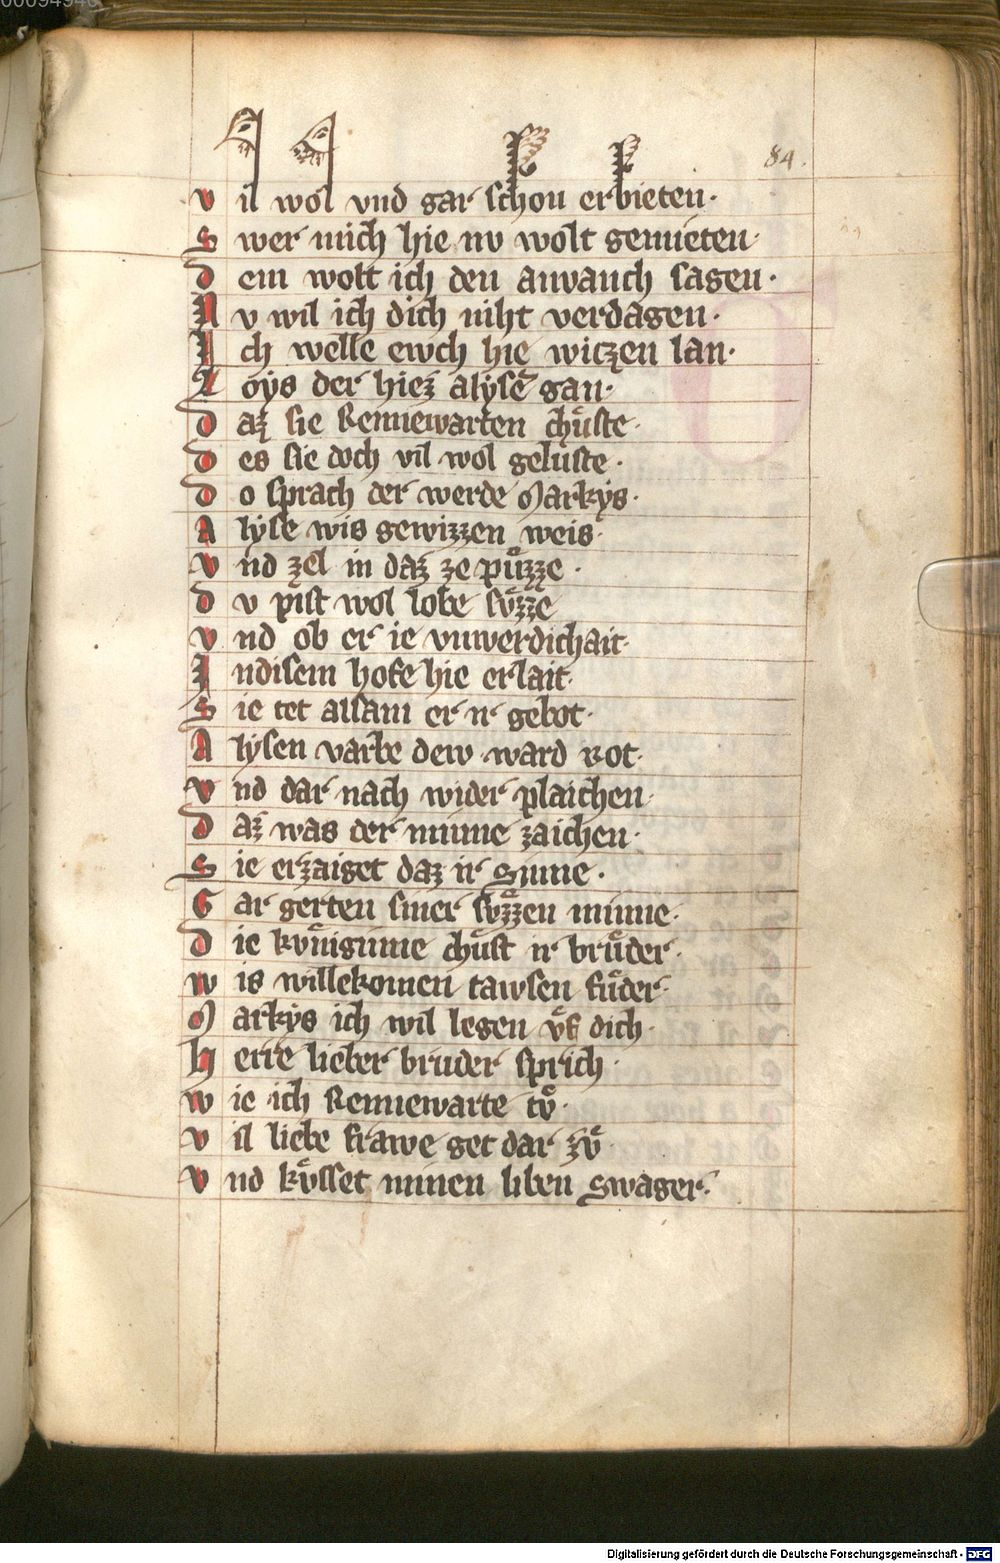 84.
v il wol vnd gar schon erbieten·
s wer mich hie nv wolt genieten·
d em wolt ich den anvanch sagen·
N v wil ich dich niht verdagen·
I ch welle ewch hie witzen lan·
L oys der hiez alyse gan·
d az sie Rennewarten chuͤste·
d es sie doch vil wol geluste·
d o sprach der werde Markys·
A lyse wis gewizzen weis·
v nd zel in daz ze puͦzze·
d v pist wol lobe suͤzze
v nd ob er ie vnwerdichait·
I ndisem hofe hie erlait·
S ie tet alsam er ir gebot·
A lysen varbe dew ward rot·
v nd dar nach wider plaichen·
d az was der minne zaichen·
S ie erzaiget daz ir Sinne·
G ar gerten siner suͤzzen minne·
d ie kvͤniginne chuͤst ir bruͤder·
w is willekomen tawsen fuͤder·
M arkys ich wil legen vͤf dich·
h erre lieber bruder sprich·
w ie ich Rennewarte tvͦ·
v il liebe frawe get dar zvͦ
v nd kvͤsset minen liben Swager·
Digitalisierung gefördert durch die Deutsche Forschungsgemeinschaft - DFG